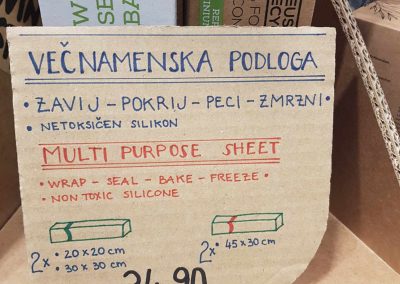 VEČNAMENSKA PODLOGA
• ZAVIJ - POKRIJ - PECI - ZMRZNI •
• NETOKSIČEN SILIKON
MULTI PURPOSE SHEET
• WRAP - SEAL - BAKE - FREEZE •
• NON TOXIC SILICONE
2x • 20x20 cm
• 30x30 cm
2x • 45x30 cm
24,90